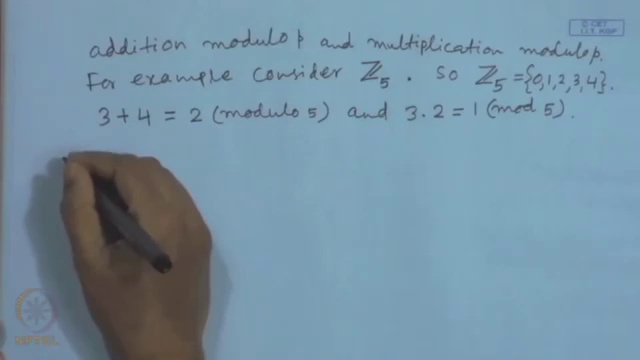 © CET
I.I.T. KGP
addition modulo p and multiplication modulo p.
For example consider ℤ₅. So ℤ₅ = {0,1,2,3,4}.
3 + 4 = 2 (modulo 5) and 3 . 2 = 1 (mod 5).
NPTEL